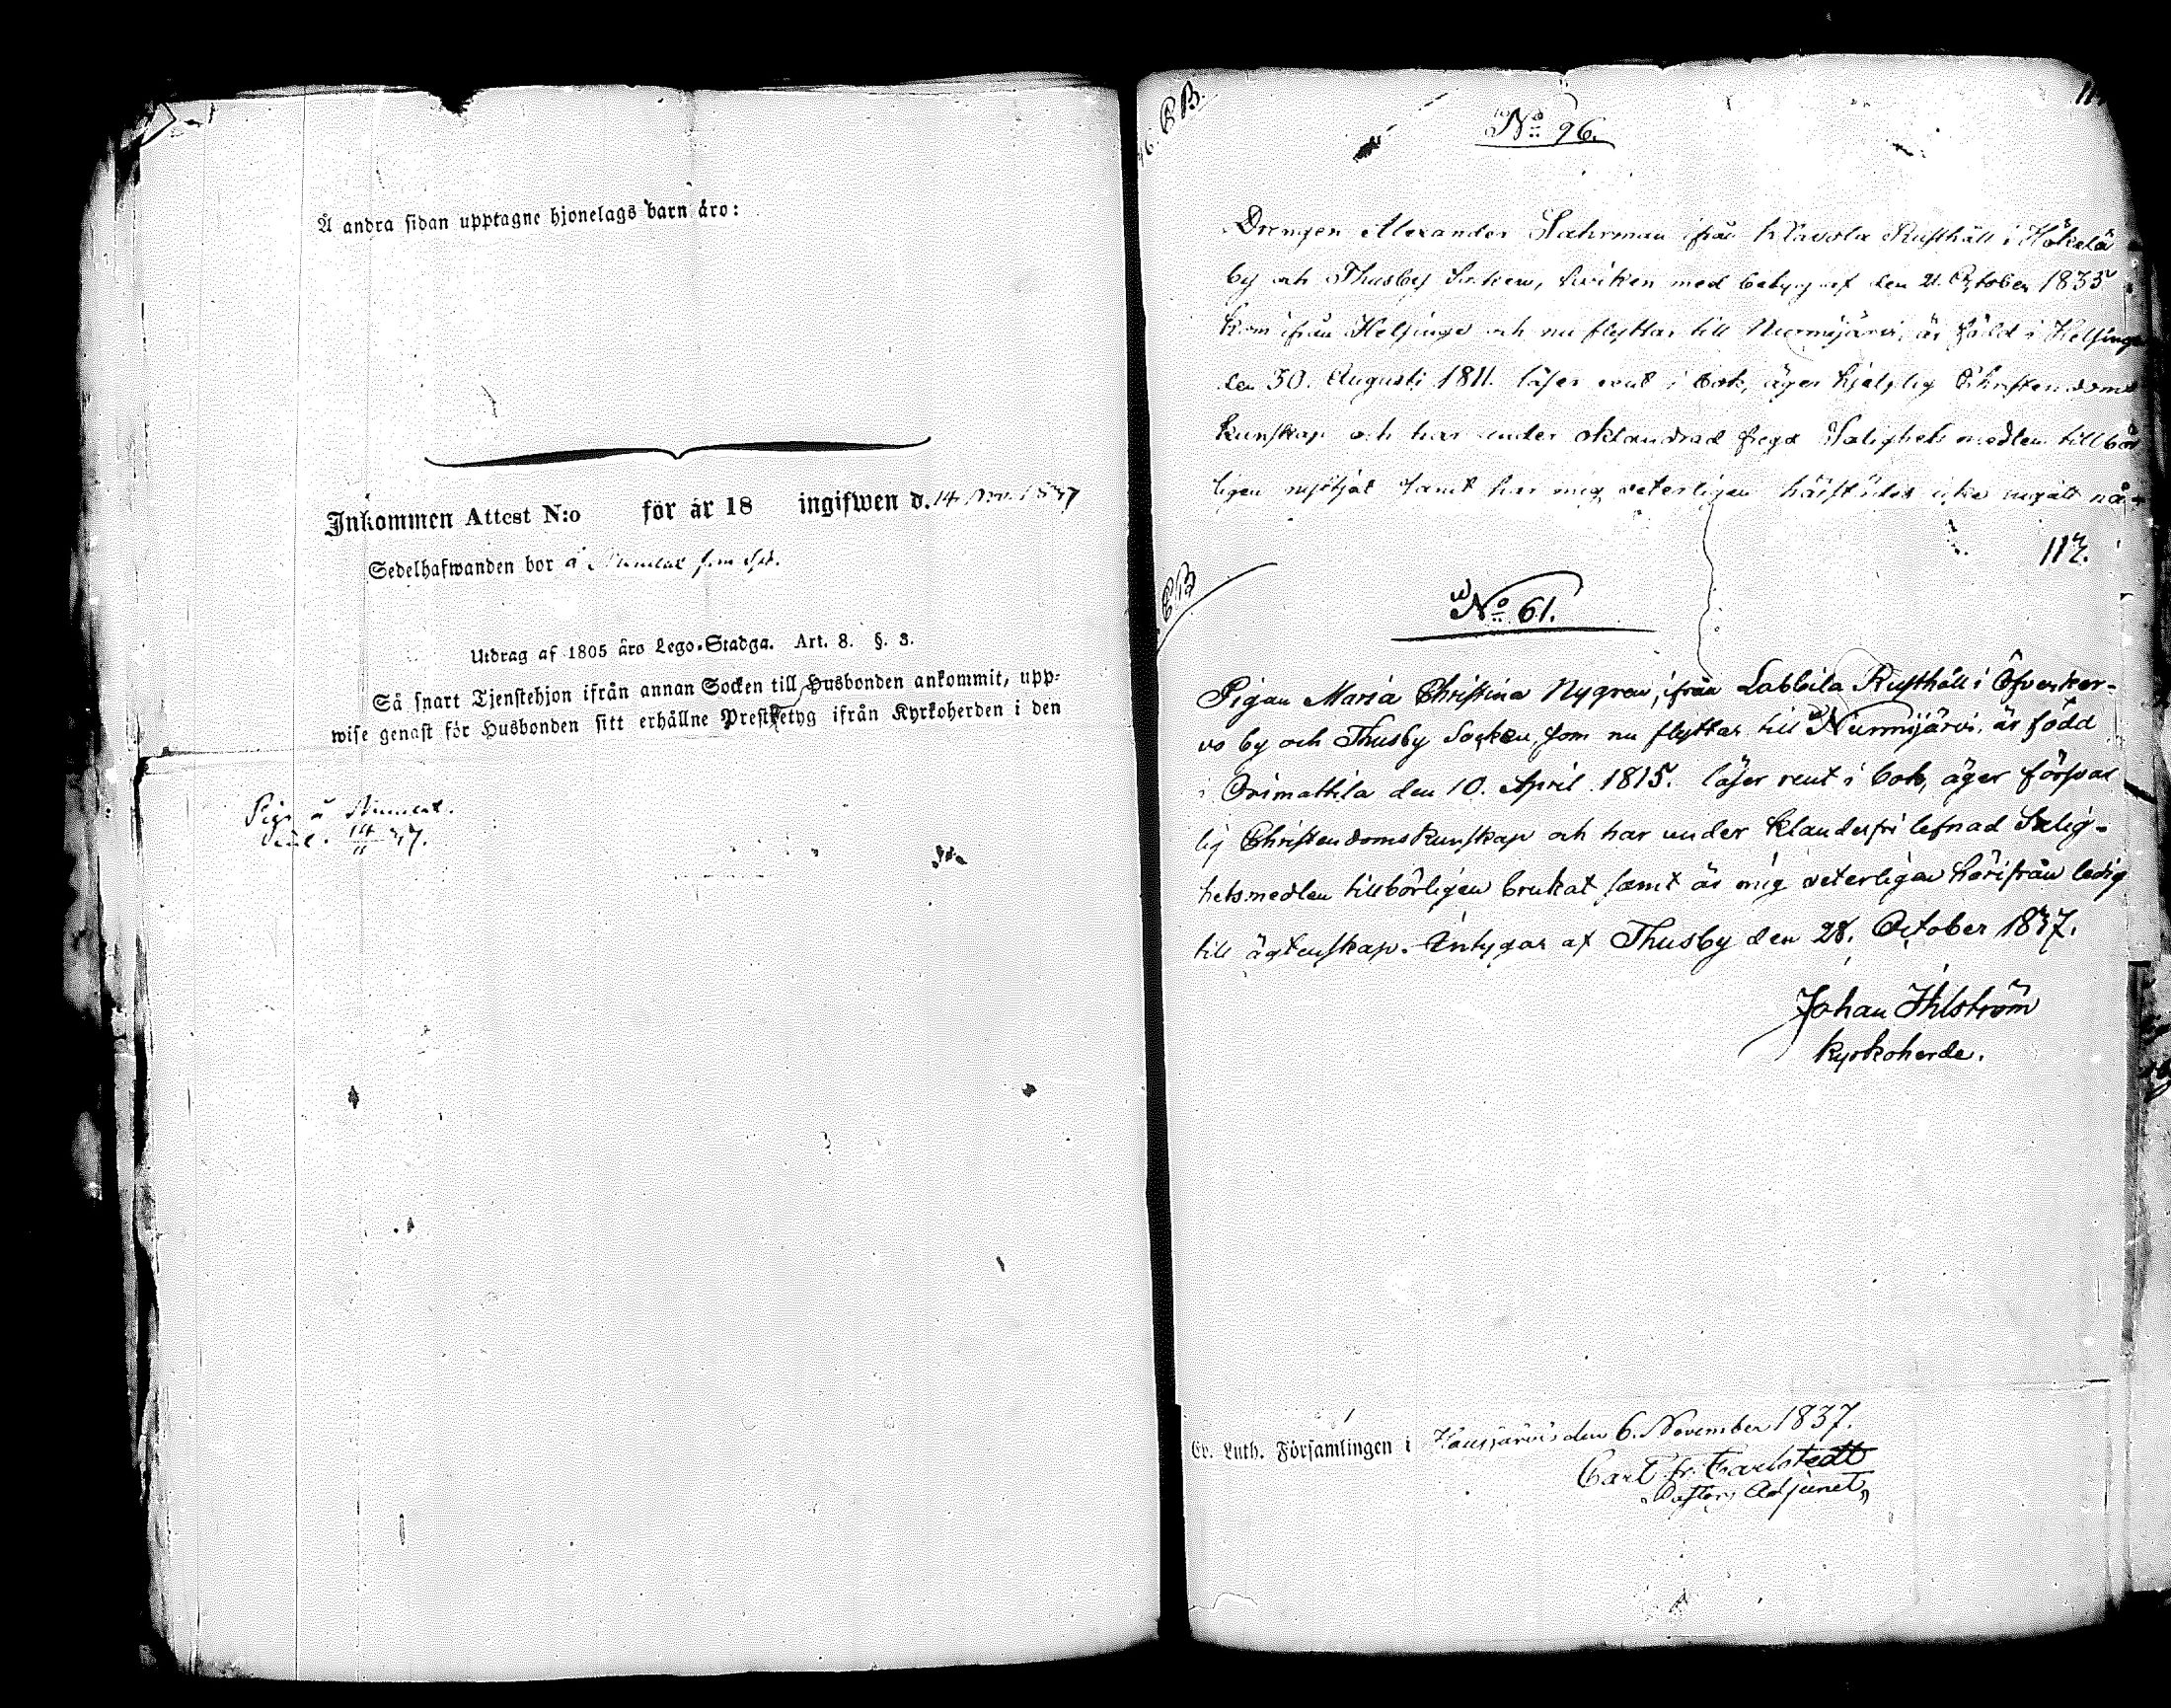 Å andra sidan upptagne hjonelags barn äro:
Inkommen Attest N:o för år 18 ingifwen d. 14 Nov. 1837
Sedelhafwanden bor å
Utdrag af 1805 års Lego-Stadga. Art. 8. §. 3.
Så snart Tjenstehjon ifrån annan Socken till Husbonden ankommit, upp-
wise genast för Husbonden sitt erhållne Prestbetyg ifrån Kyrkoherden i den
Piga å
14/11 37.
BB.
No 96.
Drengen Alexander ifrån Klavola Rusthåll i Hökelä
by och Thusby Socken, hviken med betyg af den 21. October 1835
kom ifrån Helsinge och nu flyttar till Nurmijärvi, är född i Helsinge
den 30. Augusti 1811. läser rent i bok, äger hjelplig Christendoms
kunskap och har under oklandrad fregd Salighets medlen tillbör
ligen nyttjat samt har mig veterligen härstädes icke ingått nå-
117.
BB
No 61.
Pigan Maria Christina Nygren, ifrån Labbila Rusthåll i Öfverker-
vo by och Thusby Socken, som nu flyttar till Nurmijärvi, är född
i Orimattila den 10. April 1815. läser rent i bok, äger försvar
lig Christendomskunskap och har under klanderfri lefnad Salig-
hetsmedlen tillbörligen brukat samt är mig veterligen härifrån ledig
till ägtenskap. Intygar af Thusby den 28. October 1837.
Johan Ihlström
Kyrkoherde.
Ev. Luth. Församlingen i Hausjärvi den 6. November 1837.
Carl Fr. Carlstedt
Pastors Adjunct